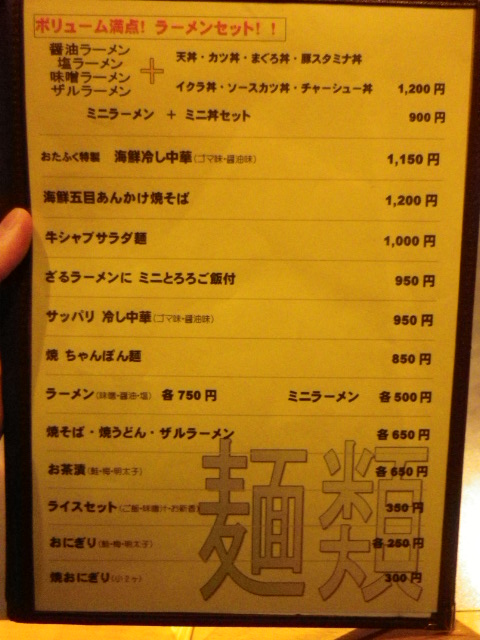 ボリューム満点! ラーメンセット!!
醤油ラーメン
塩ラーメン
味噌ラーメン
ザルラーメン
+
天丼・カツ丼・まぐろ丼・豚スタミナ丼
イクラ丼・ソースカツ丼・チャーシュー丼 1,200円
ミニラーメン + ミニ丼セット 900円
おたふく特製 海鮮冷し中華(ゴマ味・醤油味) 1,150円
海鮮五目あんかけ焼そば 1,200円
牛シャブサラダ麺 1,000円
ざるラーメンに ミニとろろご飯付 950円
サッパリ 冷し中華(ゴマ味・醤油味) 950円
焼 ちゃんぽん麺 850円
ラーメン(味噌・醤油・塩) 各750円 ミニラーメン 各500円
焼そば・焼うどん・ザルラーメン 各650円
お茶漬(鮭・梅・明太子) 各650円
ライスセット(ご飯・味噌汁・お新香 350円
おにぎり(鮭・梅・明太子) 各250円
焼おにぎり(小2ヶ) 300円
麺類